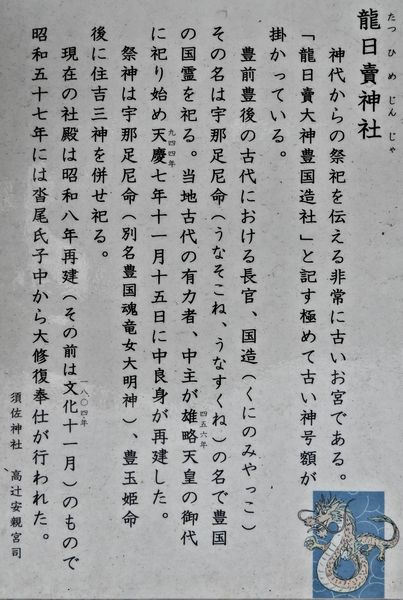 龍日賣神社
たつひめじんじゃ
神代からの祭祀を伝える非常に古いお宮である。
「龍日賣大神豊国造社」と記す極めて古い神号額が
掛かっている。
豊前豊後の古代における長官、国造(くにのみやっこ)
その名は宇那足尼命(うなそこね、うなすくね)の名で豊国
の国霊を祀る。当地古代の有力者、中主が雄略天皇の御代
四五六年
に祀り始め天慶七年十一月十五日に中良身が再建した。
九四四年
祭神は宇那足尼命(別名豊国魂竜女大明神)、豊玉姫命
後に住吉三神を併せ祀る。
現在の社殿は昭和八年再建(その前は文化十一月)のもので
一八〇四年
昭和五十七年には沓尾氏子中から大修復奉仕が行われた。
須佐神社 高辻安親宮司